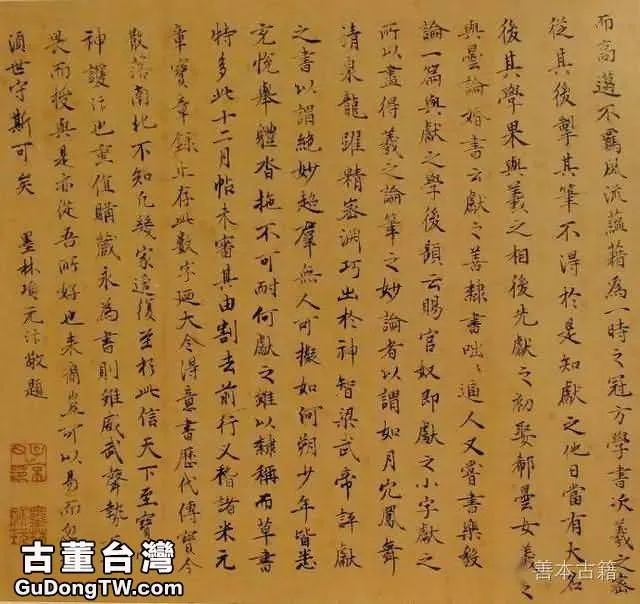 而高邁不羈風流蘊藉為一時之冠方學書次羲之密
從其後掣其筆不得於是知獻之他日當有大名
後其學果與羲之相後先獻之初娶郗曇女羲之
與曇論婚書云獻之善隸書咄咄逼人又嘗書樂毅
論一篇與獻之學後題云賜官奴即獻之小字獻之
所以盡得羲之論筆之妙論者以謂如丹穴鳳舞
清泉龍躍精密淵巧出於神智梁武帝評獻
之書以謂絕妙超群無人可擬如河朔少年皆悉
充悅舉體沓拖不可耐何獻之雖以隸稱而草書
特多此十二月帖未審其由割去前行又稽諸米元
章寶章錄止存此數字迺大令得意書歷代傳寶今
散落南北不知凡幾家這復至於此信天下至寶
神護行也重值購藏永為書則雖威武聲勢
畏而授與是亦從吾所好也來裔豈可以易而忽
須世守斯可矣 墨林項元汴敬題
古董台灣
GuDongTW.com
善本古籍